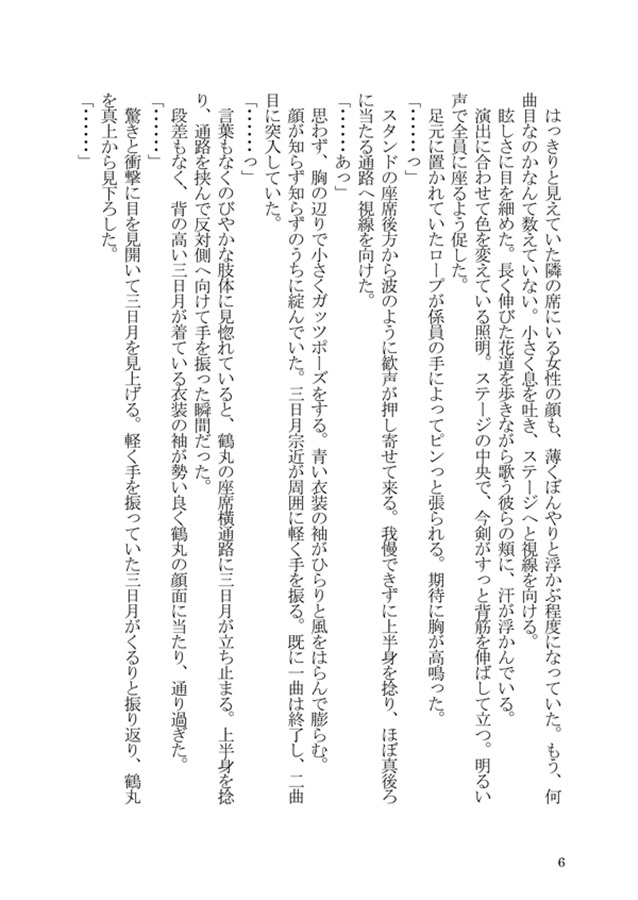 はっきりと見えていた隣の席にいる女性の顔も、薄くぼんやりと浮かぶ程度になっていた。もう、何
曲目なのかなんて数えていない。小さく息を吐き、ステージへと視線を向ける。
眩しさに目を細めた。長く伸びた花道を歩きながら歌う彼らの頬に、汗が浮かんでいる。
演出に合わせて色を変えている照明。ステージの中央で、今剣がすっと背筋を伸ばして立つ。明るい
声で全員に座るよう促した。
足元に置かれていたロープが係員の手によってピンっと張られる。期待に胸が高鳴った。
「……っ」
スタンドの座席後方から波のように歓声が押し寄せて来る。我慢できずに上半身を捻り、ほぼ真後ろ
に当たる通路へ視線を向けた。
「……あっ」
思わず、胸の辺りで小さくガッツポーズをする。青い衣装の袖がひらりと風をはらんで膨らむ。
顔が知らず知らずのうちに綻んでいた。三日月宗近が周囲に軽く手を振る。既に一曲は終了し、二曲
目に突入していた。
「……っ」
言葉もなくのびやかな肢体に見惚れていると、鶴丸の座席横通路に三日月が立ち止まる。上半身を捻
り、通路を挟んで反対側へ向けて手を振った瞬間だった。
段差もなく、背の高い三日月が着ている衣装の袖が勢い良く鶴丸の顔面に当たり、通り過ぎた。
「……」
驚きと衝撃に目を見開いて三日月を見上げる。軽く手を振っていた三日月がくるりと振り返り、鶴丸
を真上から見下ろした。
「……」
6